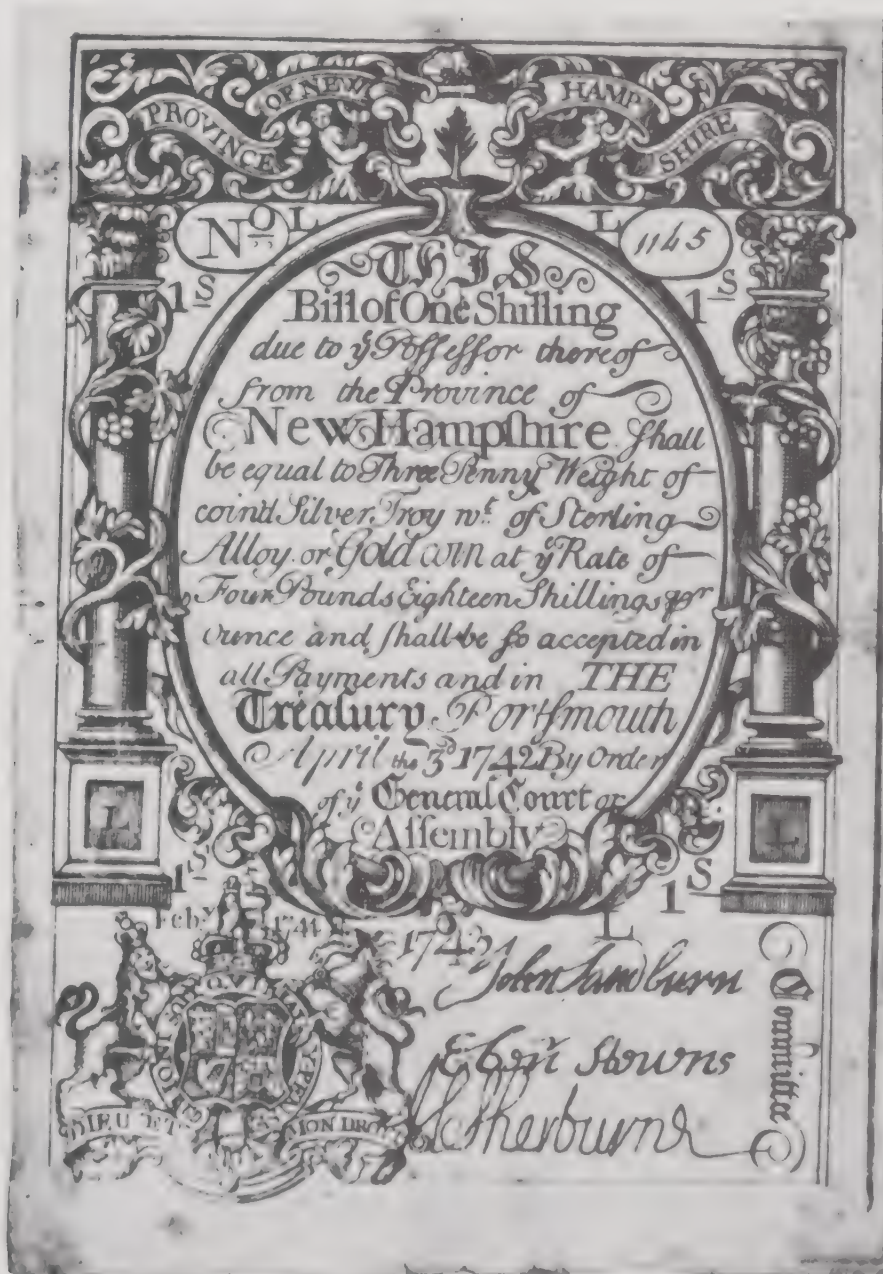 PROVINCE OF NEW HAMP SHIRE
No L L 1145
1S 1S
THIS
Bill of One Shilling
due to ye Possessor thereof
from the Province of
New Hampshire Shall
be equal to Three Penny Weight of
coin'd Silver, Troy wt. of Sterling
Alloy or Gold coin at ye Rate of
Four Pounds Eighteen Shillings pr
ounce and shall be so accepted in
all Payments and in THE
Treasury. Portsmouth
April the 3d 1742 By Order
of ye General Court or
Assembly
L L
1S 1S
L
Feby 1744
1742
John Sandburn
Ebenr Stevens
Sherburne
Committee
HONI SOIT QUI MAL Y PENSE
DIEU ET MON DROIT